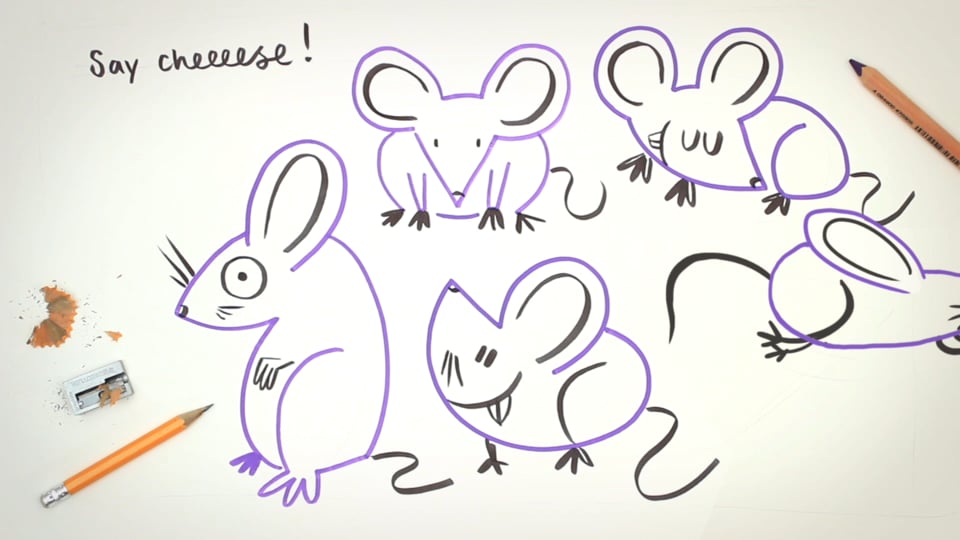 Say cheeeese!